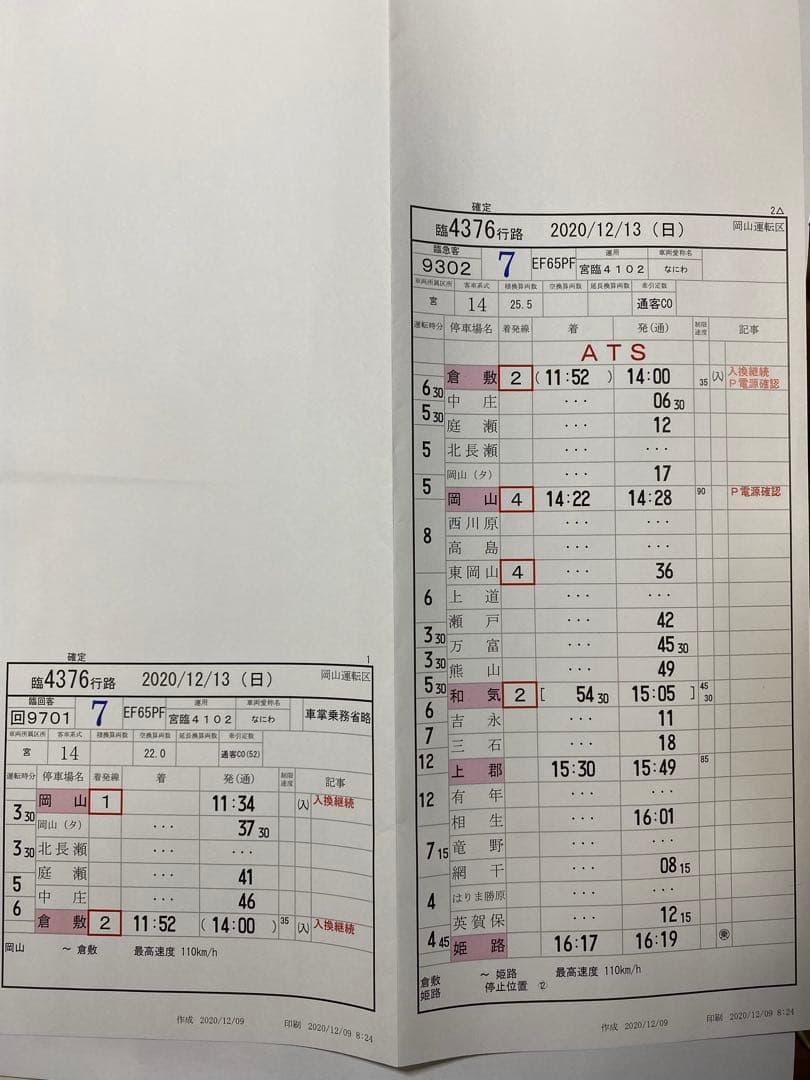 確定
1
臨4376行路 2020/12/13 (日) 岡山運転区
臨回客 運用 車両愛称名
回9701 7 EF65PF 宮臨4102 なにわ 車掌乗務省略
車両所属区所 客車系式 積換算両数 空換算両数 延長換算両数 牽引定数
宮 14 22.0 通客CO(52)
運転時分 停車場名 着発線 着 発(通) 制限速度 記事
岡山 1 11:34 (入) 入換継続
3 30
岡山(タ) ··· 37 30
3 30
北長瀬 ··· ···
庭瀬 ··· 41
5
中庄 ··· 46
6
倉敷 2 11:52 (14:00) 35 (入) 入換継続
岡山 ～ 倉敷 最高速度 110km/h
作成 2020/12/09 印刷 2020/12/09 8:24
確定
2△
臨4376行路 2020/12/13 (日) 岡山運転区
臨急客 運用 車両愛称名
9302 7 EF65PF 宮臨4102 なにわ
車両所属区所 客車系式 積換算両数 空換算両数 延長換算両数 牽引定数
宮 14 25.5 通客CO
運転時分 停車場名 着発線 着 発(通) 制限速度 記事
ATS
倉敷 2 (11:52) 14:00 35 (入) 入換継続
P電源確認
6 30
中庄 ··· 06 30
5 30
庭瀬 ··· 12
5
北長瀬 ··· ···
岡山(タ) ··· 17
5
岡山 4 14:22 14:28 90 P電源確認
西川原 ··· ···
8
高島 ··· ···
東岡山 4 ··· 36
6
上道 ··· ···
瀬戸 ··· 42
3 30
万富 ··· 45 30
3 30
熊山 ··· 49
5 30
和気 2 [ 54 30 15:05 ] 45 30
6
吉永 ··· 11
7
三石 ··· 18
12
上郡 15:30 15:49 85
有年 ··· ···
12
相生 ··· 16:01
竜野 ··· ···
7 15
網干 ··· 08 15
はりま勝原 ··· ···
4
英賀保 ··· 12 15
4 45
姫路 16:17 16:19 乗
倉敷 ～ 姫路 最高速度 110km/h
姫路 停止位置 ⑫
作成 2020/12/09 印刷 2020/12/09 8:24